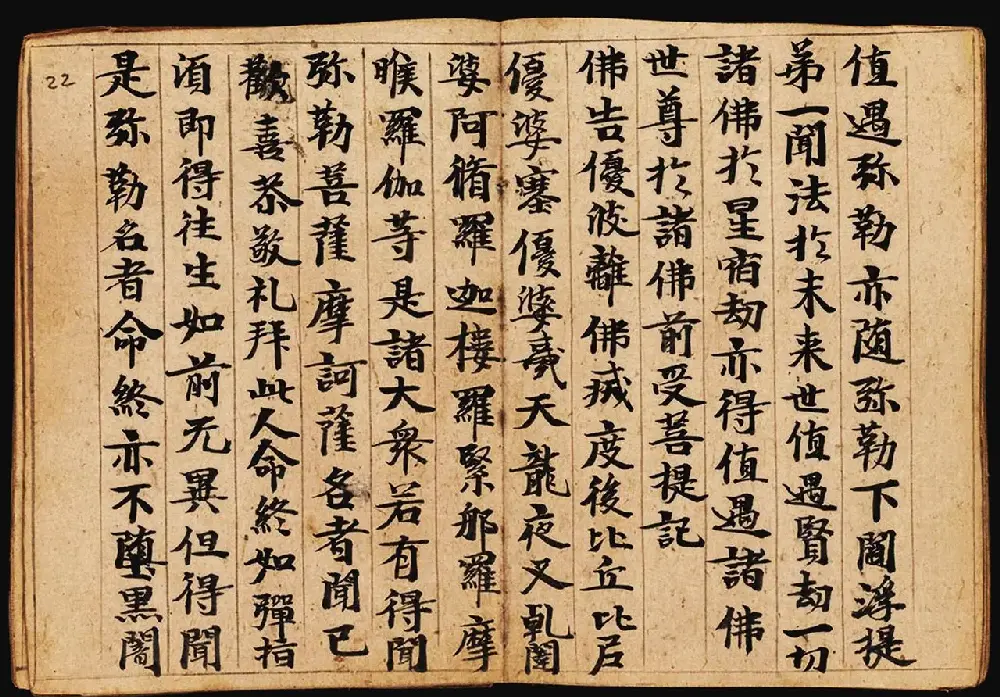 值遇弥勒亦随弥勒下閻浮提
苐一聞法於末来世值遇賢劫一切
諸佛於星宿劫亦得值遇諸佛
世尊於諸佛前受菩提記
佛告優波離佛滅度後比丘比尼
優婆塞優婆夷天龍夜叉乹闥
婆阿脩羅迦樓羅緊那羅摩
睺羅伽等是諸大衆若有得聞
弥勒菩薩摩訶薩名者聞已
歡喜恭敬礼拜此人命終如彈指
湏即得往生如前无異但得聞
是弥勒名者命終亦不墮黒闇
22